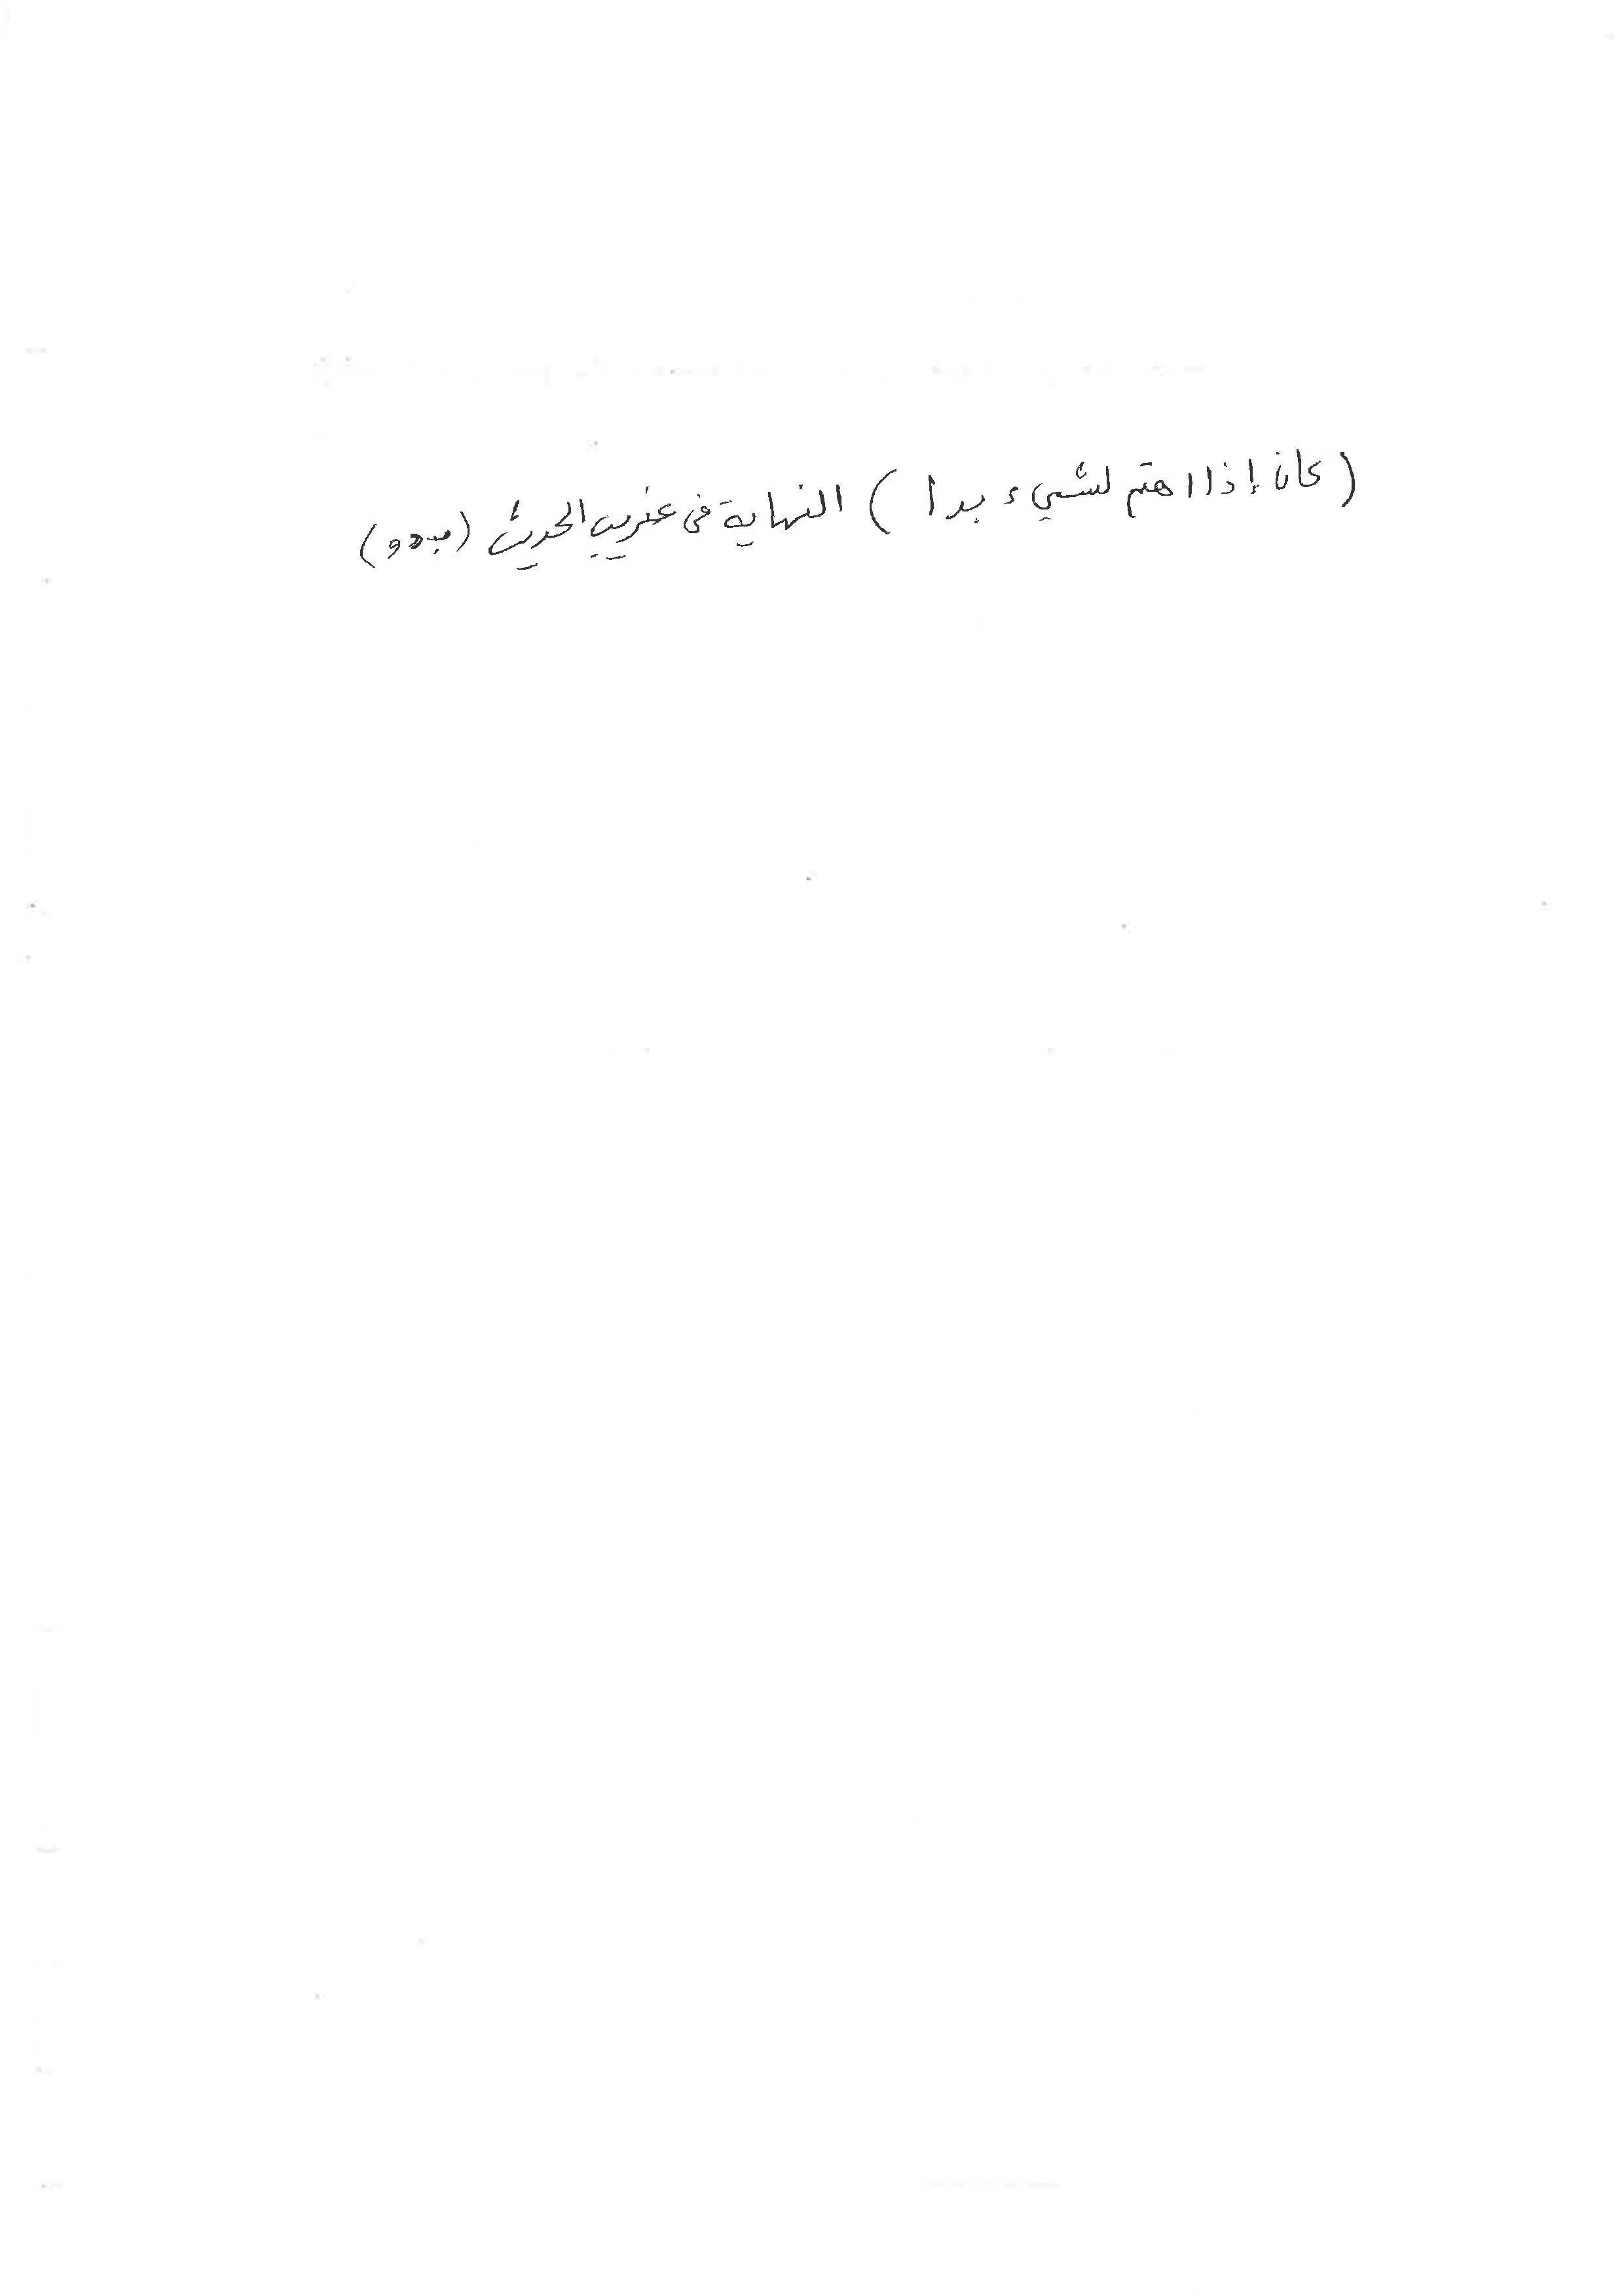 (كان إذا اهتم لشيء بدا) النهاية في غريب الحديث (بدو)